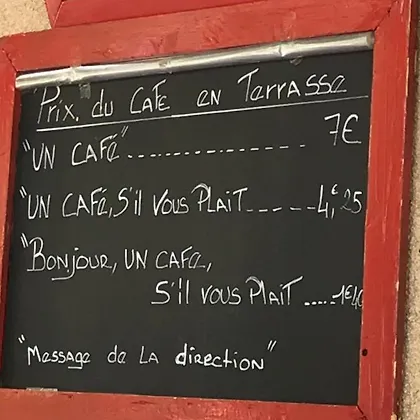 Prix du Café en Terrasse
"UN CAFé"................ 7€
"UN CAFé, S'il Vous Plaît.......4,€25
"Bonjour, UN CAFé,
S'il vous Plaît .....1€40
"Message de LA direction"